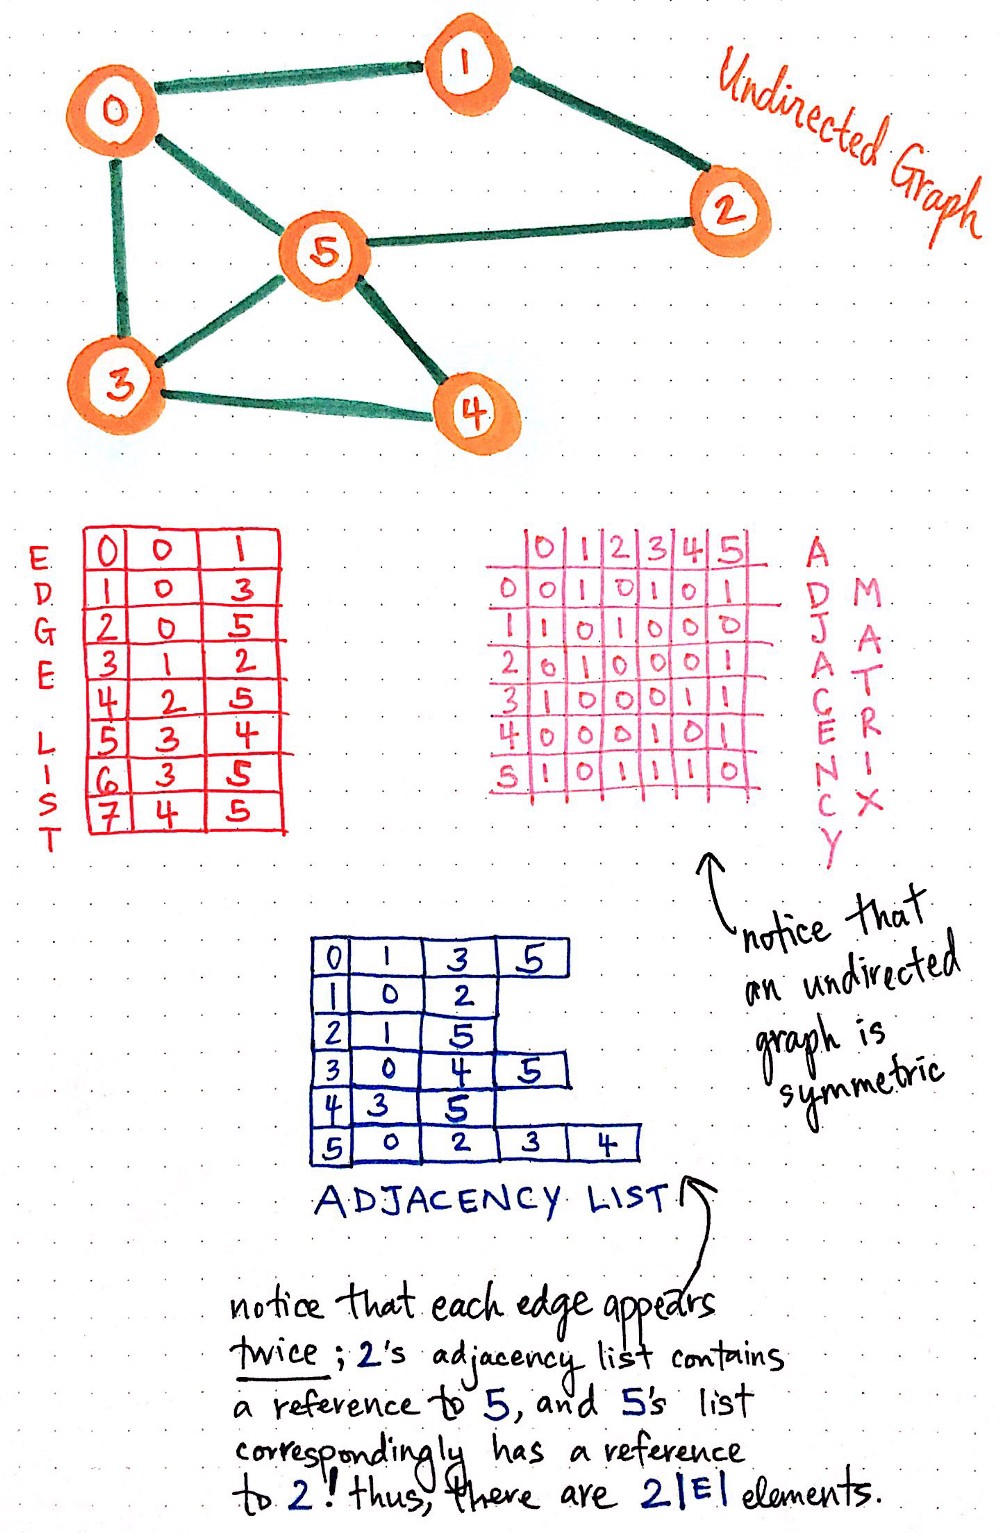 1
0
2
5
3
4
Undirected Graph
EDGE LIST
0 0 1
1 0 3
2 0 5
3 1 2
4 2 5
5 3 4
6 3 5
7 4 5
0 1 2 3 4 5
0 0 1 0 1 0 1
1 1 0 1 0 0 0
2 0 1 0 0 0 1
3 1 0 0 0 1 1
4 0 0 0 1 0 1
5 1 0 1 1 1 0
ADJACENCY
MATRIX
notice that
an undirected
graph is
symmetric
0 1 3 5
1 0 2
2 1 5
3 0 4 5
4 3 5
5 0 2 3 4
ADJACENCY LIST
notice that each edge appears
twice; 2's adjacency list contains
a reference to 5, and 5's list
correspondingly has a reference
to 2! thus, there are 2|E| elements.